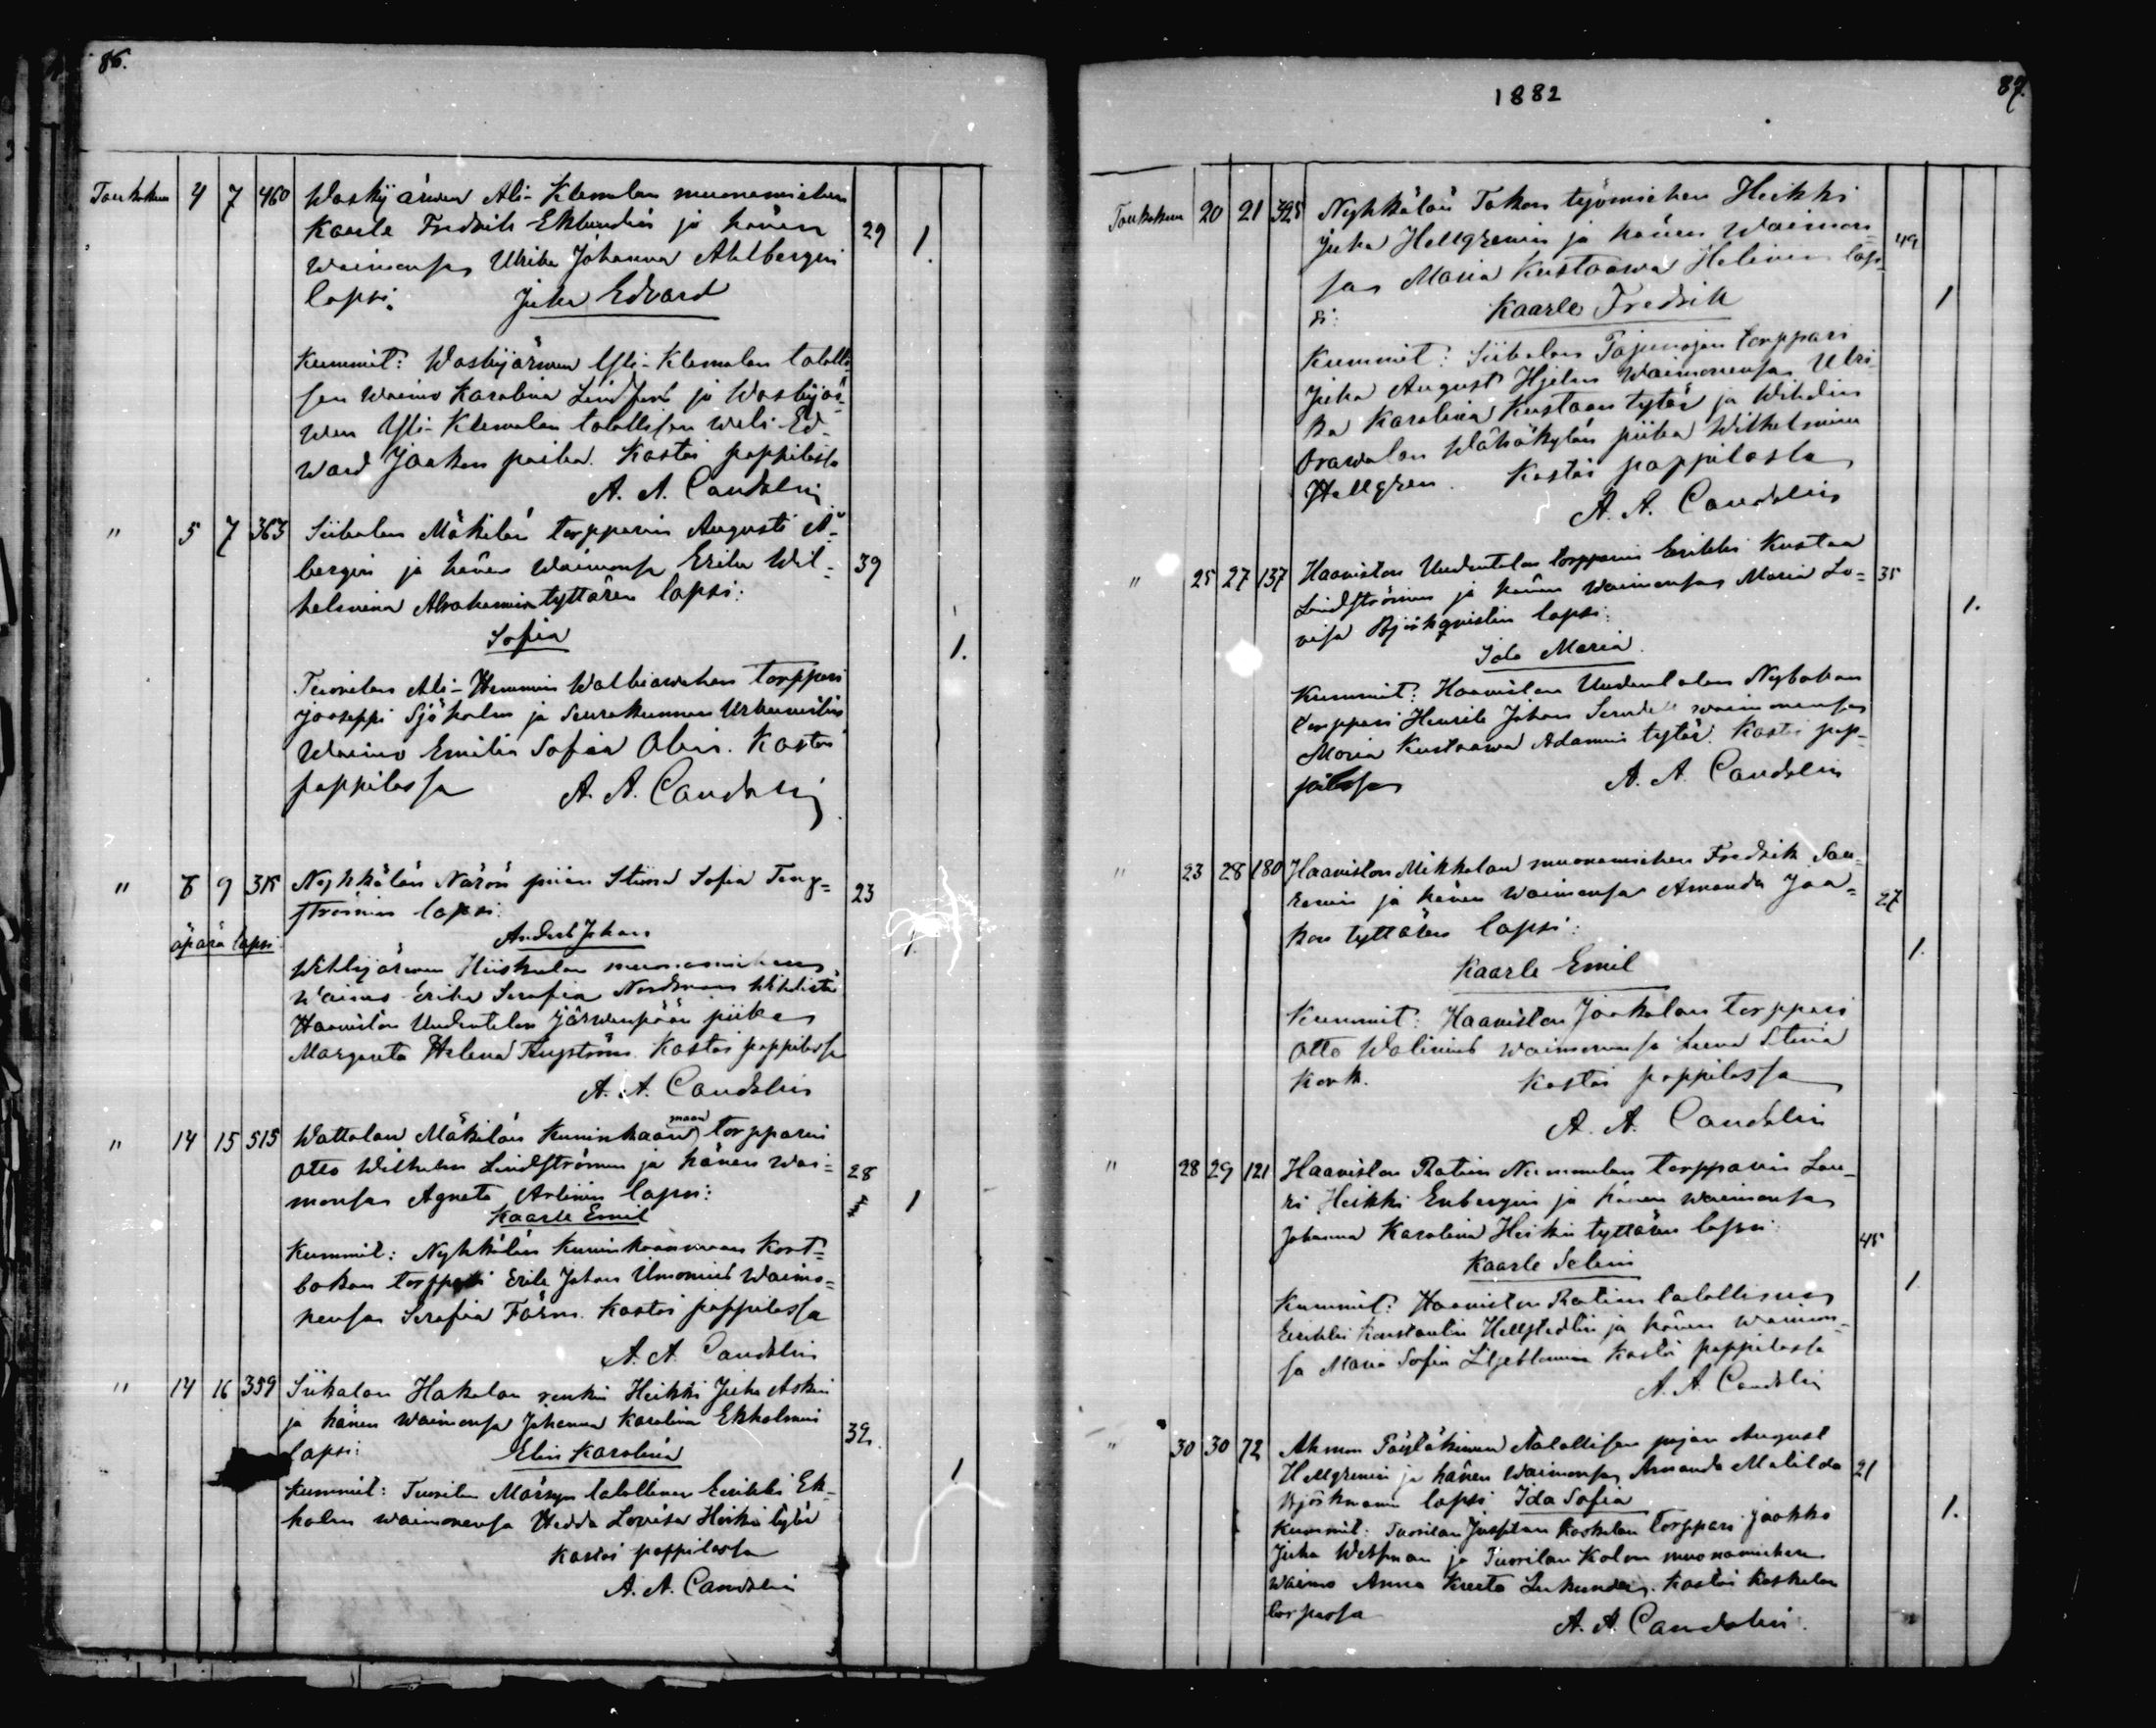 86.
Toukokuu 4 7 460 Waskijärwen Ali-Klemelan muonamiehen
Kaarle Fredrik Eklundin ja hänen 29 1.
Waimonsa Ulrika Johanna Ahlbergin
lapsi: Juha Edvard
Kummit: Waskijärwen Yli-Klemelan talolli-
sen waimo Karolina Lindfors ja Waskijär-
wen Yli-Klemelan talollisen weli Ed-
ward Jaakon poika. Kastoi pappilassa
A. A. Candolin
" 5 7 363 Siikalan Mäkilän torpparin Augusti Å-
bergin ja hänen Waimonsa Erika Wil- 39
helmina Abrahamin tyttären lapsi:
Sofia 1.
Tuorilan Ali-Hemmin torppari
Jooseppi Sjöholm ja Seurakunnan Urkuniston
Waimo Emilia Sofia Kastoi
pappilassa A. A. Candolin
" 8 9 318 Nyhkälän Närön piian Stiina Sofia Teng- 23
strömin lapsi:
äpärä lapsi Anders Johan 1.
Hiiskulan muonamiehen
Waimo Erika Serafia Nordman
Haaviston Uudentalon Järwenpään piika
Margareta Helena Kastoi pappilassa
A. A. Candolin
" 14 15 515 Wattolan Mäkilän Kuninkaan maan torpparin
Otto Wilhelm Lindströmin ja hänen Wai- 28
monsa Agneta Arlinin lapsi: 1
Kaarle Emil
Kummit: Nyhkälän Kuninkaanmaan Kort-
bakan torppari Erik Johan Waimo-
nensa Serafia Färm. Kastoi pappilassa
A. A. Candolin
" 14 16 359 Siikalan Hakalan rengin Heikki Juha Askin
ja hänen Waimonsa Johanna Karolina Ekholmin 32.
lapsi: Elin Karolina
1
Kummit: Tuorilan talollinen Eerikki Ek-
holm waimonensa Hedda Lovisa Heikin tytär
Kastoi pappilassa
A. A. Candolin
1882
87.
Toukokuu 20 21 325 Nyhkälän Takan työmiehen Heikki
Juha Hellgrenin ja hänen Waimon- 49
sa Maria Kustaawa Helinin lap-
si: Kaarle Fredrik 1
Kummit: Siikalan Pajunojan torppari
Juha August Hjelm Waimonensa Ulri-
ka Karolina Kustaan tytär ja Wihdin
Orawalan Wähäkylän piika Wilhelmina
Hellgren. Kastoi pappilassa
A. A. Candolin
" 25 27 137 Haaviston Uudentalon torpparin Eerikki Kustaa 35
Lindströmin ja hänen Waimonsa Maria Lo-
visa Björkqvistin lapsi: 1.
Ida Maria.
Kummit: Haaviston Uudentalon Nybakan
torppari Henrik Johan waimonensa
Maria Kustaawa Adamin tytär. Kastoi pap-
pilassa A. A. Candolin
" 23 28 180 Haaviston Mikkolan muonamiehen Fredrik Sau-
renin ja hänen Waimonsa Amanda Jaa- 27
kon tyttären lapsi: 1.
Kaarle Emil
Kummit: Haaviston Jaakolan torppari
Otto Walinius waimonensa Leena Stina
Kork. Kastoi pappilassa
A. A. Candolin
" 28 29 121 Haaviston Ratian Nummelan torpparin Lau-
ri Heikki Enbergin ja hänen waimonsa
Johanna Karolina Heikin tyttären lapsi: 45
Kaarle Selim 1.
Kummit: Haaviston Ratian talollinen
Eerikki Konstantin Hellstedtin ja hänen Waimon-
sa Maria Sofia Liljeblomin Kastoi pappilassa
A. A. Candolin
" 30 30 72 Ahmon Pöytäkiwen talollisen pojan August
Hellgrenin ja hänen Waimonsa Amanda Matilda 21
Björkmanin lapsi Ida Sofia 1.
Kummit: Tuorilan Jussilan Koskelan torppari Jaakko
Juha Westman ja Tuorilan Kolon muonamiehen
waimo Anna Kreeta Kastoi Koskelan
torpassa A. A. Candolin.